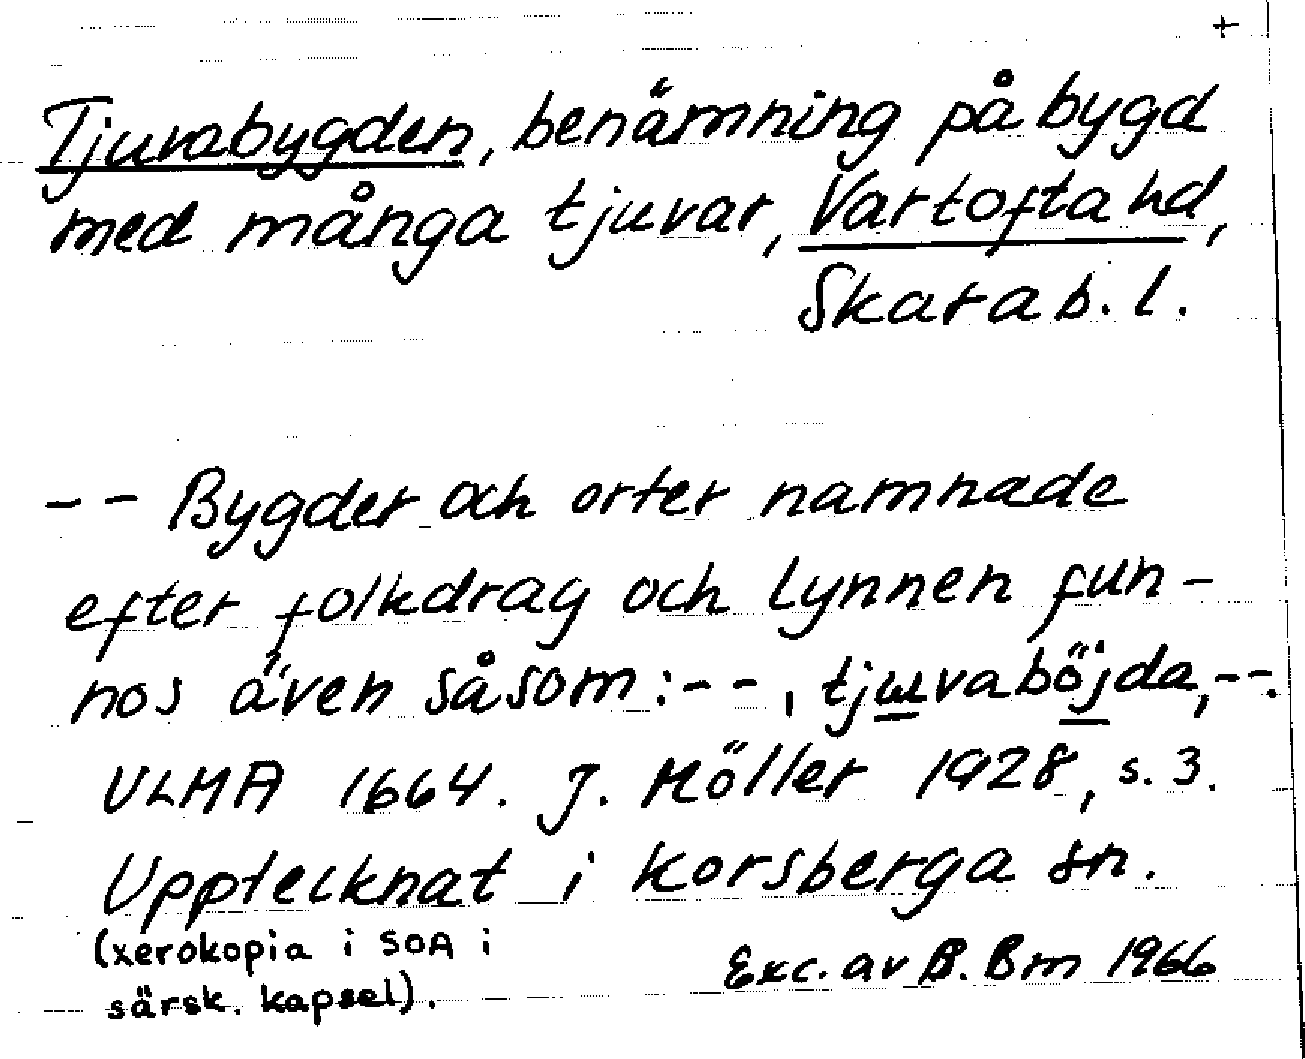 +
Tjuvabygden, benämning på bygd
med många tjuvar, Vartofta hd,
Skarab. l.
-- Bygder och orter namnade
efter folkdrag och lynnen fun-
nos även såsom: --, tjuvaböjda, --.
ULMA 1664. J. Möller 1928, s. 3.
Upptecknat i Korsberga sn.
(xerokopia i SOA i
särsk. kapsel).
Exc. av B. Bm 1966